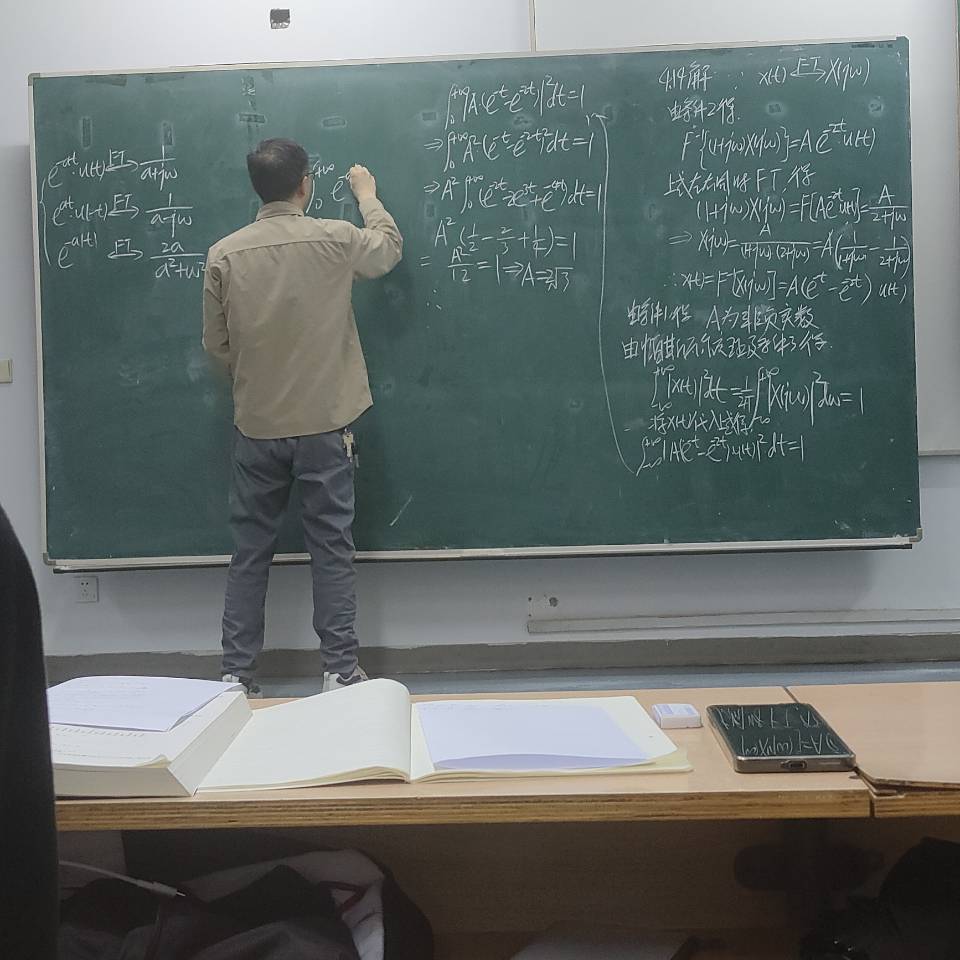 e^{-at}·u(t) ⟷FT 1/(a+jω)
e^{at}·u(-t) ⟷FT 1/(a-jω)
e^{-a|t|} ⟷FT 2a/(a²+ω²)
∫₀^{+∞} e^-
∫₀^{+∞} |A(e^{-t}-e^{-2t})|²dt=1
⇒ ∫₀^{+∞} A²(e^{-t}-e^{-2t})²dt=1
⇒ A² ∫₀^{+∞} (e^{-2t}-2e^{-3t}+e^{-4t})dt=1
A²(1/2-2/3+1/4)=1
= A²/12=1⇒A=2√3
∴
4.14解 ∵ x(t) ⟷FT X(jω)
由条件2得
F^{-1}{(1+jω)X(jω)}=Ae^{-2t}·u(t)
上式左右同时FT得
(1+jω)X(jω)=F[Ae^{-2t}u(t)]=A/(2+jω)
⇒ X(jω)=A/((1+jω)(2+jω))=A(1/(1+jω)-1/(2+jω))
∴x(t)=F^{-1}[X(jω)]=A(e^{-t}-e^{-2t})u(t)
由条件1得 A为非负实数
由帕斯瓦尔定理及条件3得
∫_{-∞}^{+∞}|x(t)|²dt=1/2π∫_{-∞}^{+∞}|X(jω)|²dω=1
将x(t)代入上式得
∫_{-∞}^{+∞}|A(e^{-t}-e^{-2t})u(t)|²dt=1